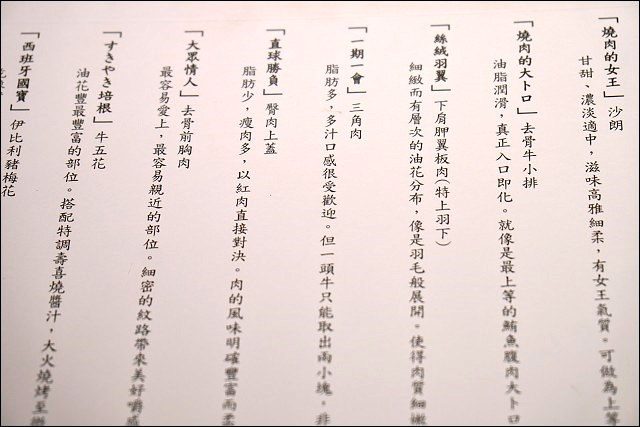 「燒肉的女王」沙朗
甘甜、濃淡適中，滋味高雅細柔，有女王氣質。可做為上等
「燒肉的大トロ」去骨牛小排
油脂潤滑，真正入口即化。就像是最上等的鮪魚腹肉大トロ
「絲絨羽翼」下肩胛翼板肉(特上羽下)
細緻而有層次的油花分布，像是羽毛般展開。使得肉質細嫩
「一期一會」三角肉
脂肪多，多汁口感很受歡迎。但一頭牛只能取出兩小塊，非
「直球勝負」臀肉上蓋
脂肪少，瘦肉多，以紅肉直接對決。肉的風味明確豐富而柔
「大眾情人」去骨前胸肉
最容易愛上，最容易親近的部位。細密的紋路帶來美好嚼感
「すきやき培根」牛五花
油花豐最豐富的部位。搭配特調壽喜燒醬汁，大火燒烤至
「西班牙國寶」伊比利豬梅花